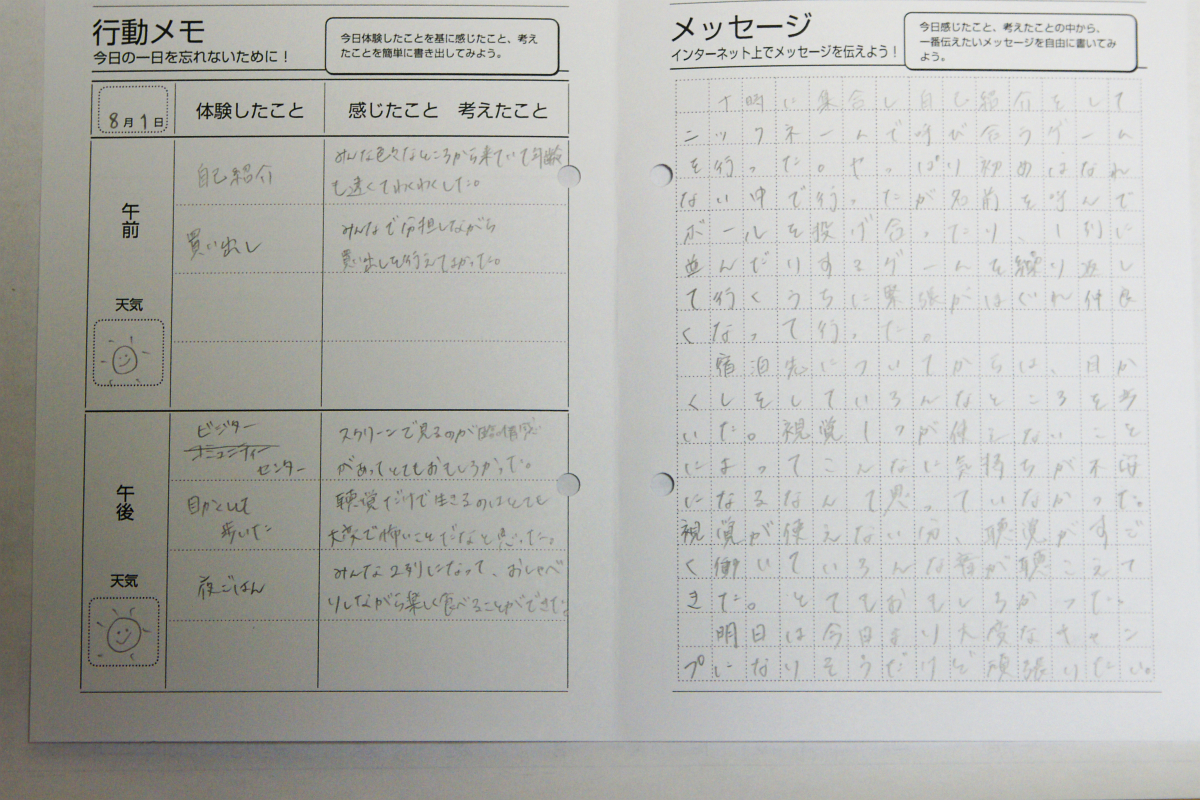 行動メモ
今日の一日を忘れないために！
今日体験したことを基に感じたこと、考え
たことを簡単に書き出してみよう。
8月1日
体験したこと
感じたこと 考えたこと
午前
天気
自己紹介
みんな色々なところから来ていて年齢
も違くてわくわくした。
買い出し
みんなで分担しながら
買い出しを行えてよかった。
午後
天気
ビジター
センター
スクリーンで見るのが臨場感
があってとてもおもしろかった。
目かくして
歩いた
聴覚だけで生きるのはとても
大変で怖いことだなと思った。
夜ごはん
みんな2列になって、おしゃべ
りしながら楽しく食べることができた。
メッセージ
インターネット上でメッセージを伝えよう！
今日感じたこと、考えたことの中から、
一番伝えたいメッセージを自由に書いてみ
よう。
十時に集合し自己紹介をして
ニックネームで呼び合うゲーム
を行った。やっぱり初めはなれ
ない中で行ったが名前を呼んで
ボールを投げ合ったり、1列に
並んだりするゲームを繰り返し
て行くうちに緊張がほぐれ仲良
くなって行った。
宿泊先についてからは、目か
くしをしていろんなところを歩
いた。視覚1つが使えないこと
によってこんなに気持ちが不安
になるなんて思っていなかった。
視覚が使えない分、聴覚がすご
く働いていろんな音が聴こえて
きた。とてもおもしろかった。
明日は今日より大変なキャン
プになりそうだけど頑張りたい。